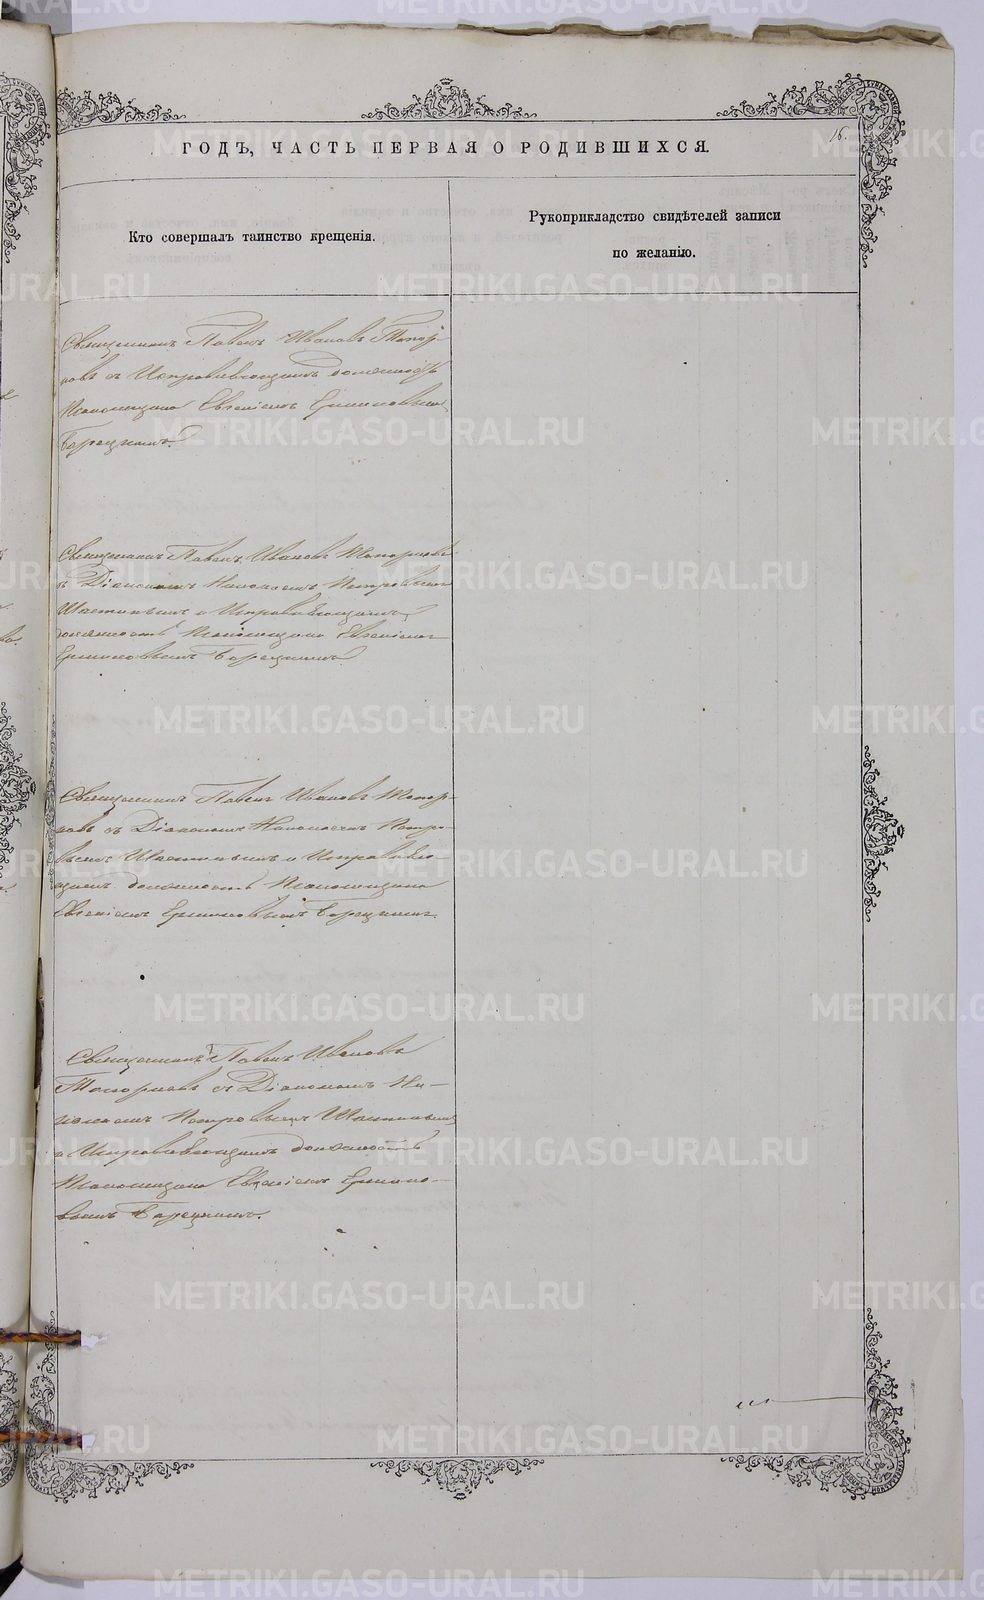 16.
ГОДЪ, ЧАСТЬ ПЕРВАЯ О РОДИВШИХСЯ.
Кто совершалъ таинство крещенія.
Рукоприкладство свидѣтелей записи
по желанію.
Священникъ Павелъ Ивановъ Топор-
ковъ съ Исправляющимъ должность
Псаломщика Евгеніемъ Ермиловымъ
Борецкимъ.
Священникъ Павелъ Ивановъ Топорковъ
съ Діакономъ Николаемъ Петровымъ
и Исправляющимъ
должность Псаломщика Евгеніемъ
Ермиловымъ Борецкимъ
Священникъ Павелъ Ивановъ Топор-
ковъ съ Діакономъ Николаемъ Петро-
вымъ и Исправляю-
щимъ должность Псаломщика
Евгеніемъ Ермиловымъ Борецкимъ
Священникъ Павелъ Ивановъ
Топорковъ съ Діакономъ Ни-
колаемъ Петровымъ
и Исправляющимъ должность
Псаломщика Евгеніемъ Ермило-
вымъ Борецкимъ.
METRIKI.GASO-URAL.RU